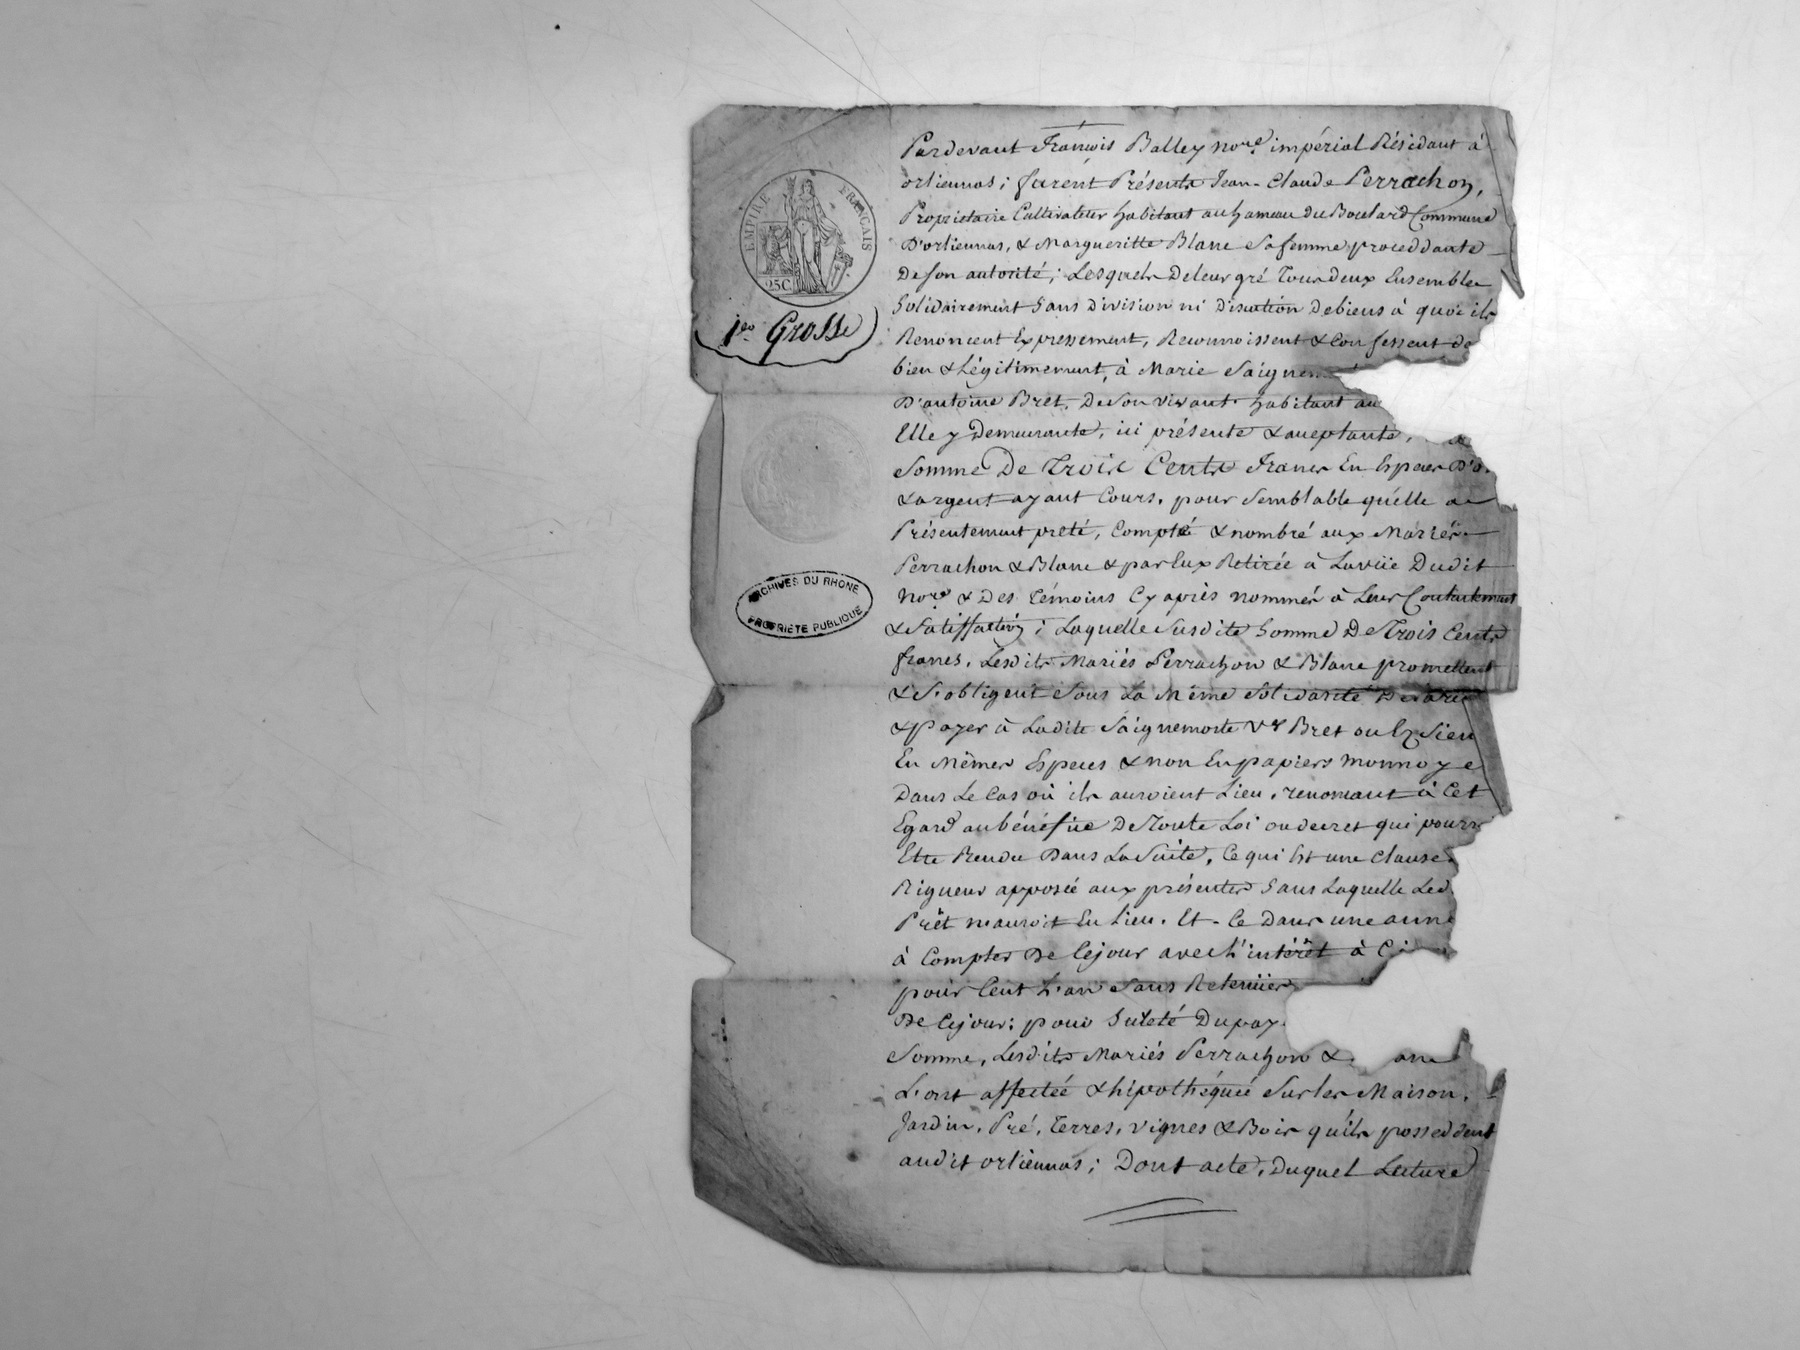 EMPIRE FRANÇAIS
25C
1ere Grosse
ARCHIVES DU RHONE
PROPRIETE PUBLIQUE
Pardevant François Balley nore impérial Résidant à
orliennas; furent Présents Jean-Claude Perrachon,
Propriétaire Cultivateur habitant au hameau du Boulard Commune
D'orliennas, & Margueritte Blanc Sa femme proceddante
De Son autorité; Lesquels De leur gré Tous deux Ensemble
Solidairement Sans Division ni Discution De biens à quoi ils
Renoncent Expressement, Reconnoissent & Confessent de
bien & Légitimement, à Marie Saignem
D'antoine Bret, De Son vivant habitant au
Elle y Demeurante, ici présente & acceptante,
Somme De Trois Cents Francs En Especes D'o
& argent ayant Cours, pour Semblable qu'elle a
Présentement preté, Compté & nombré aux Mariés
Perrachon & Blanc & par Eux Retirée à La vüe Dudit
nore & Des Témoins Cy après nommés à Leur Contentement
& Satisfaction; Laquelle Susdite Somme De Trois Cents
francs, Lesdits Mariés Perrachon & Blanc promettent
& S'obligent Sous La Même Solidarité
& Payer à Ladite Saignemorte ve Bret ou Ez Sien
En Mêmes Especes & non En papiers monnoye
Dans Le Cas où ils auroient Lieu, renonçant à Cet
Egard au bénéfice De Toute Loi ou decret qui pourr
Etre Rendu Dans La Suite, Ce qui Est une Clause
Rigueur apposée aux présentes Sans Laquelle Led
Prêt n'auroit Eu Lieu. Et Ce Dans une anné
à Compter De Cejour avec L'intérêt à Ci
pour Cent L'an Sans Retenüe
De Cejour: pour Sureté Du pay
Somme, Lesdits Mariés Perrachon & anc
L'ont affectée & hipothéquée Sur les Maison,
Jardin, Pré, Terres, vignes & Bois qu'ils posseddent
audit orliennas; Dont acte, Duquel Lecture